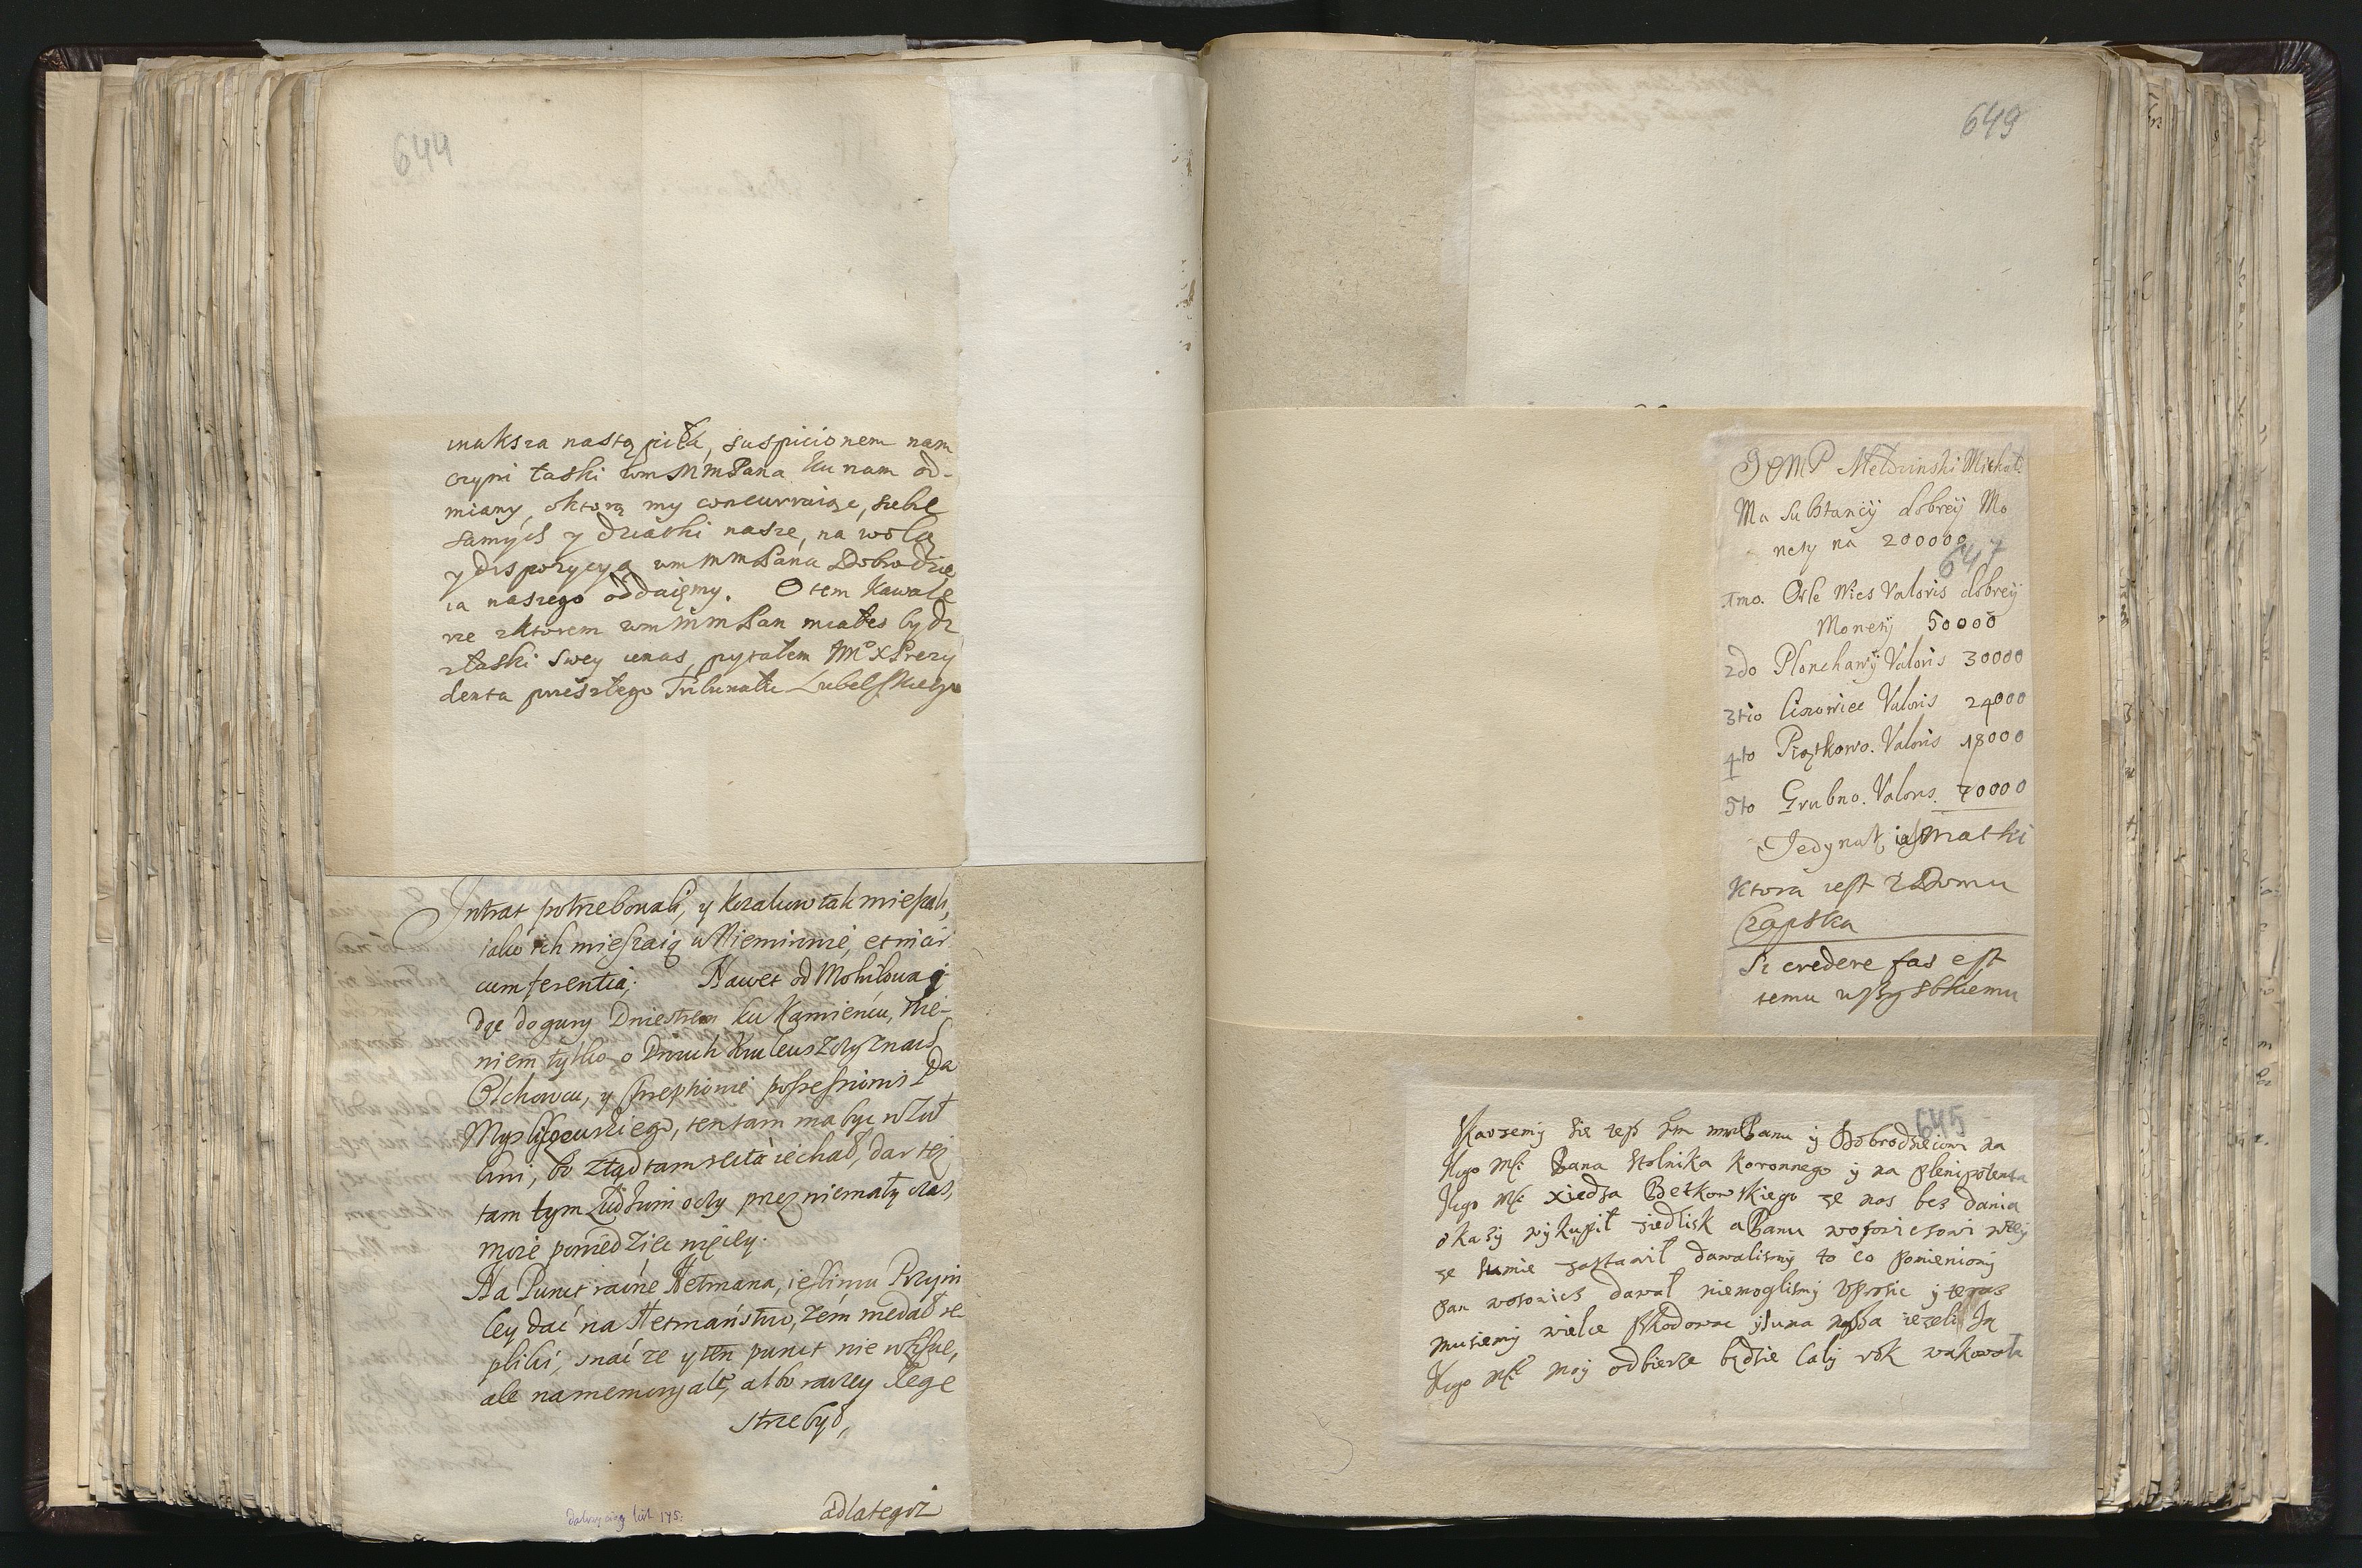 644
inaksza nastąpiła, suspicionem nam
czyni łaski wm MmPana ku nam od-
miany, oktorą my concurruiąc, siebie
samych y dziatki nasze, na wolą
y dispozycyą wm mmPana Dobrodzie
ia naszego oddaięmy. O tem Kawale
rze zktorem wm mm Pan miałeś bydz
złaski swey unas, pytałem Mo X Prezy
denta przeszłego Tribunału Lubelskiego
Intrat potrzebowali, y kozakow tak mieszali,
iako ich mieszaią w Niemirowie, et in cir
cumferentia; Nawet od Mohilowa i
dąc do gury Dniestrem ku Kamieńcu, wie-
niem tylko o Dwuch
Olchowcu, y possessionis Pa
tentam ma byc w Zwi
bo ztąd tam iechał, dar też
tam tym Ludzium oczy przez niemały czas,
może powiedziec więcey.
Na Punct racie Hetmana, ieslimu Przyin
ley dać na Hetmaństwo, żem niedał re
pliki, znać ze y ten punct nie w liscie,
ale na memoryale, albo raczey lege
strze był,
adlategoż
dalszy ciąg list 175.
649
JOMP Meldzinski Michał
Ma Substancij dobrey Mo
nety na 200000
647
1mo. Orle Wies Valoris dobrey
Monety 50000
2do Plonchawy Valoris 30000
3tio Lisowice Valoris 24000
4to Piątkowo. Valoris 18000
5to Grubno. Valoris. 70000
Jedynak, iest Matki
Ktora iest z Domu
Czapska
Si credere fas est
temu wszystkiemu
645
Skarzemy sie tesz wm mmPanu y Dobrodzieiowi na
Jego Mści Pana Stolnika Koronnego y na plenipotenta
Jego Mści xiedza Betkowskiego ze nas bes dania
okasy wykupił siedlisk a Panu woyowiczowi wtey
ze sumie zastawił dawalismy to co pomieniony
pan dawał niemoglismy Vprosic y teras
musiemy wielce szkodowac y suma nasza iezeli Ją
Jego Mści moy odbierze będzie caly rok wakowała